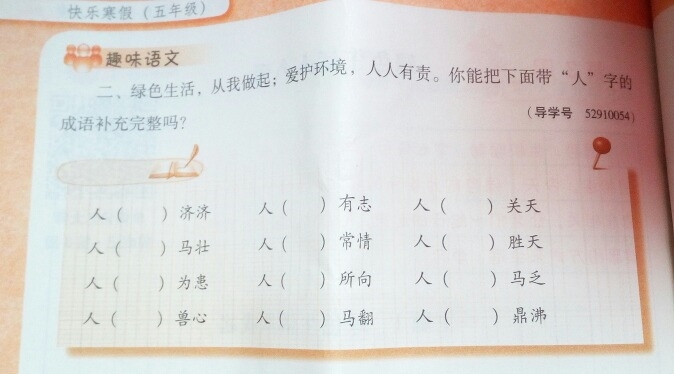 快乐寒假（五年级）
趣味语文
二、绿色生活，从我做起；爱护环境，人人有责。你能把下面带“人”字的
成语补充完整吗？
（导学号 52910054）
人（ ）济济 人（ ）有志 人（ ）关天
人（ ）马壮 人（ ）常情 人（ ）胜天
人（ ）为患 人（ ）所向 人（ ）马乏
人（ ）兽心 人（ ）马翻 人（ ）鼎沸